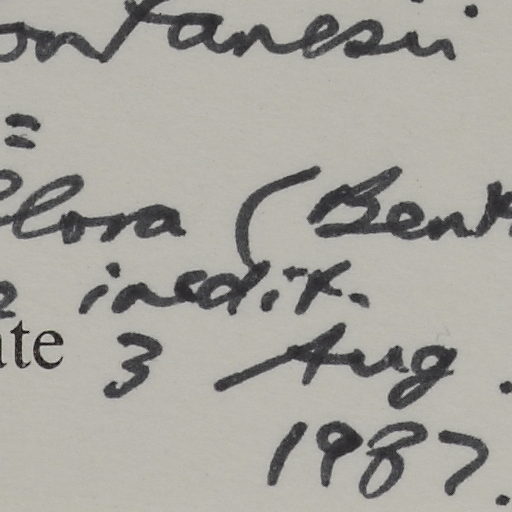 ontanesii
=
lora (Benth
inedit.
ate 3 Aug.
1987.